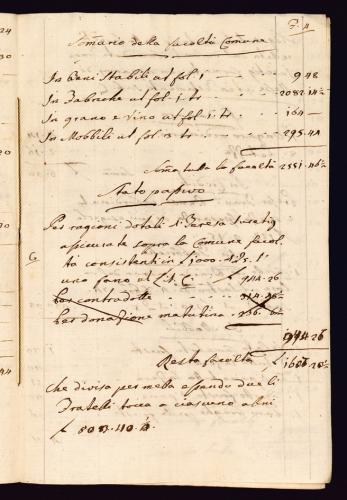 F. 4
Som̃ario della facoltà Comune
In Beni Stabili ut fol 1 948
In Fabriche ut fol. 1. to. 2082.14
In grano e vino ut fol. 1. to. 164
In Mobbili ut fol. 3 to. 295.41
Som̃a tutta la facoltà 2551.46
Stato passivo
Per ragioni dotali di Teresa
assicurate sopra la Comune facol-
tà consistenti in 1000.
uno fano al L. 914.26
Per contradotte 314.26
Per donazione matutina 266.6
914.26
Resta facoltà L 1606.20
Che divisa per metta essendo due li
Fratelli tocca a ciascuno abni
L 803.40